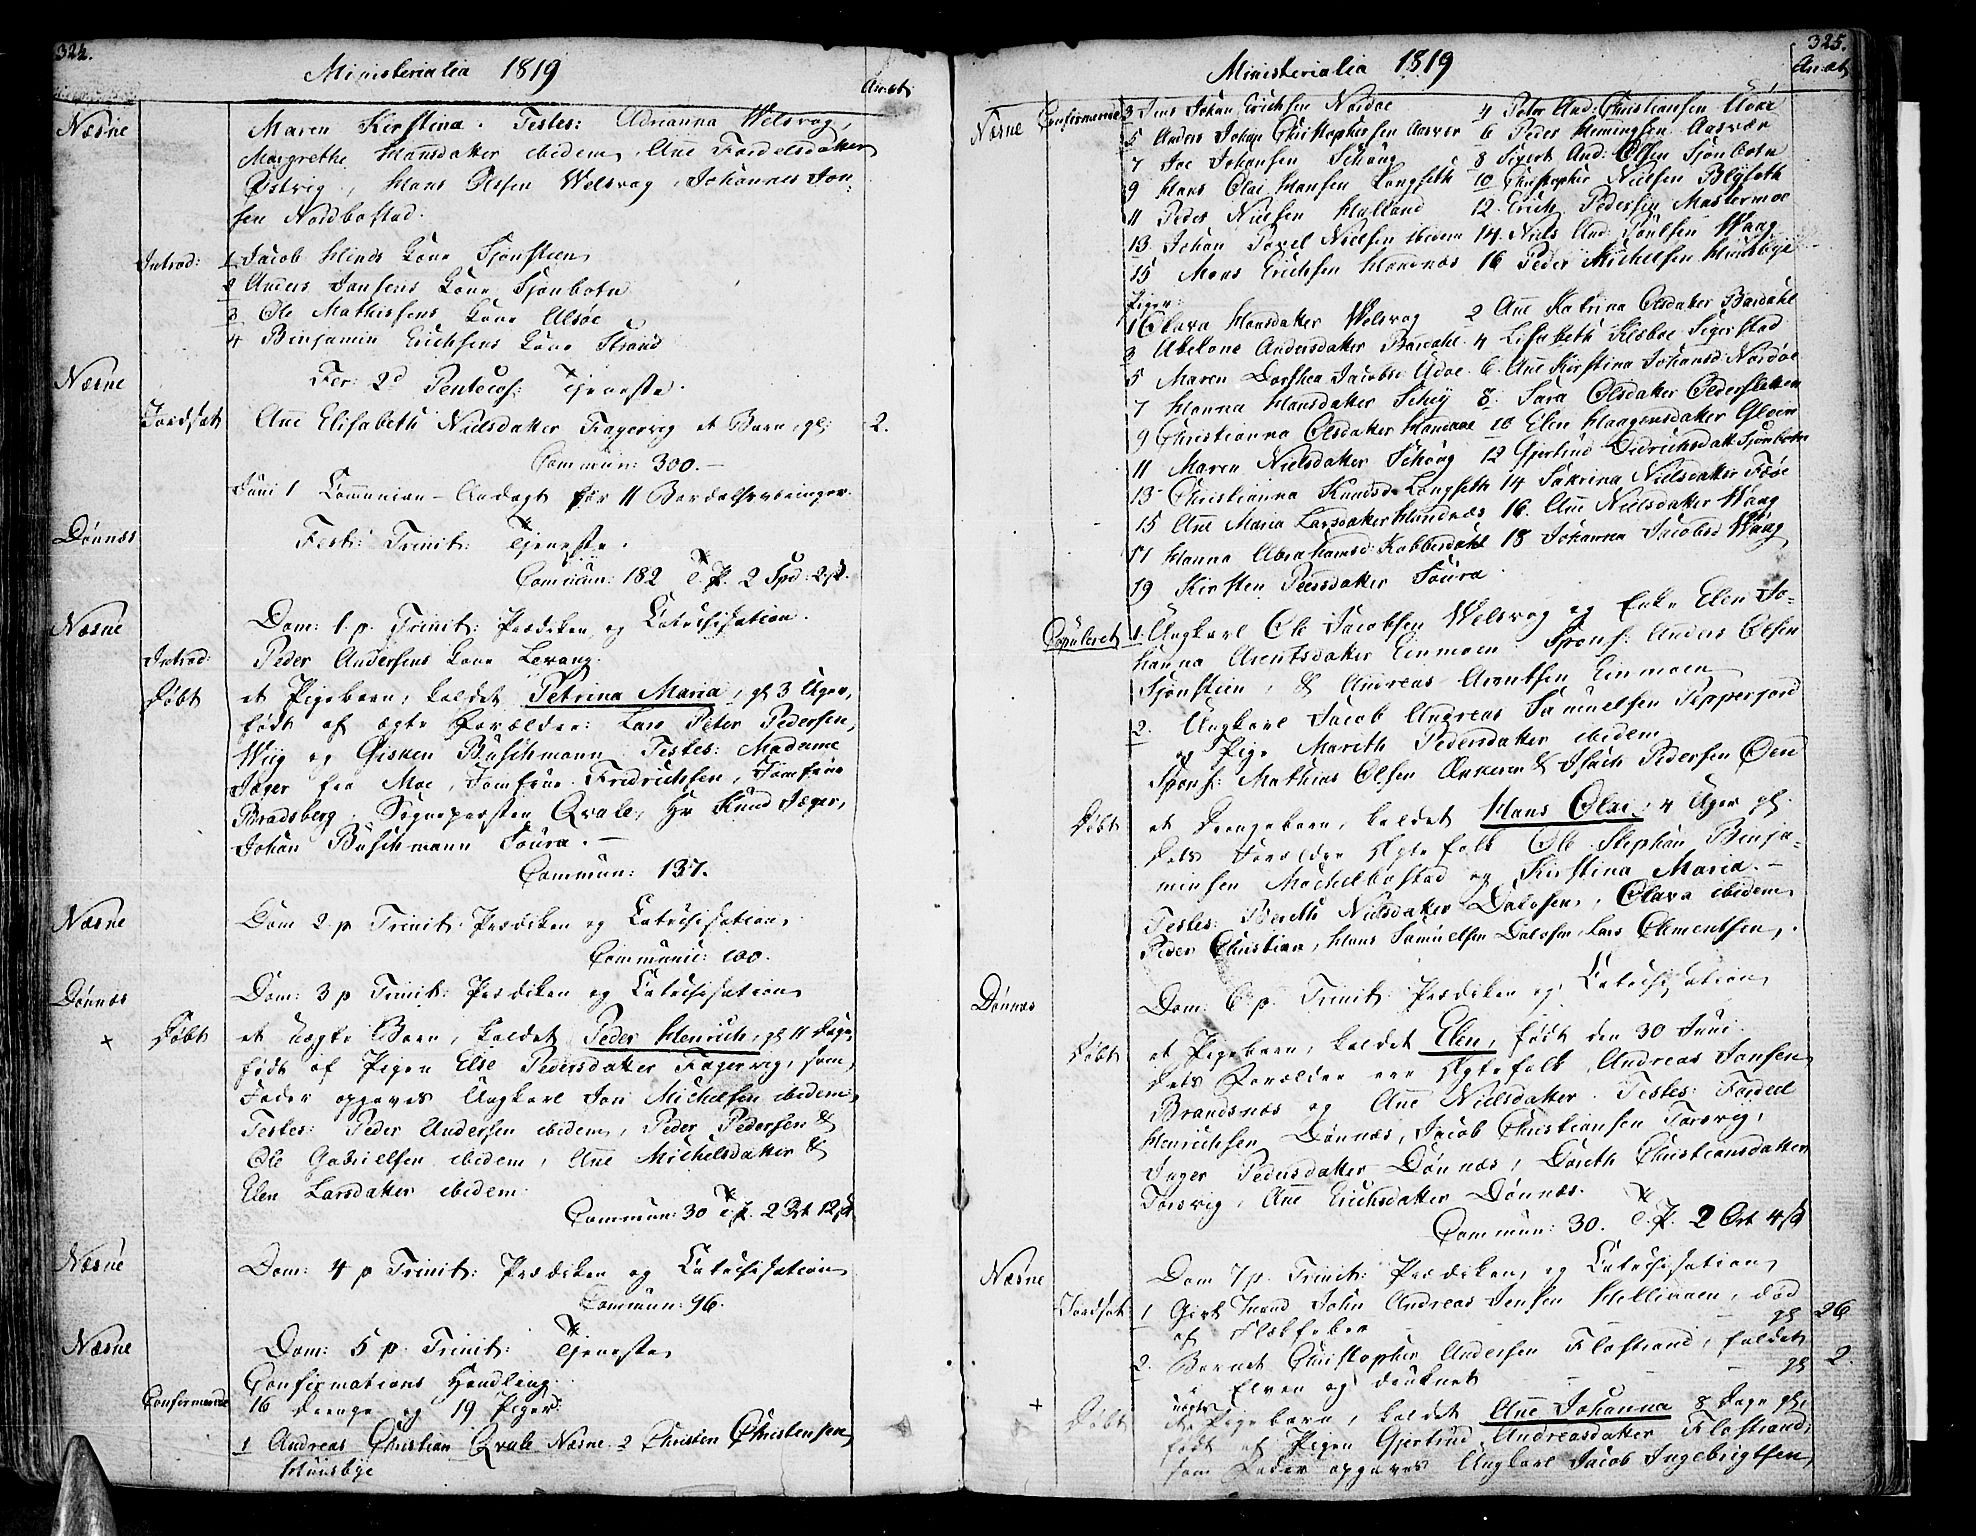 324.
Ministerialia 1819
An: æt:
Næsne
Maren Kirstina. Testes: Adrianna Welsvog,
Margrethe Hansdatter ibidem, Ane Fordelsdatter
Østvig, Hans Olsen Welsvog, Johannes Jon-
sen Nordbostad.
Introd: 1 Jacob Hinds Kone Sjonsteen
2 Anders Jonsens Kone Sjonbotn
3 Ole Mathisens Kone Alsøe
4 Binjamin Erichsens Kone Strand
Næsne
Fer: 2d Pentecos: Tjeneste.
Jordsat Ane Elisabeth Nielsdatter Fagervig et Barn, gl: 2.
Commun: 300.
Juni 1 Communion-Andagt for 11
Dønnæs
Fest: Trinit: Tjeneste.
Commun: 182 T. P. 2 Spd: 2 s.
Næsne
Dom: 1. p. Trinit: Prædiken og Catechisation.
Introd: Peder Andersens Kone Levang.
Døbt et Pigebarn, kaldet Petrina Maria, gl 3 Uger,
født af ægte Forældre: Lars Peter Pedersen,
Wiig og Gisken Buschmann. Testes: Madame
Jæger fra Moe, Jomfrue Fredrichsen, Jomfrue
Bradsberg, Sognepresten Qvale, Hr Knud Jæger,
Johan Buschmann Soura.
Commun: 137.
Næsne
Dom 2 p Trinit: Prædiken og Catechisation,
Communic: 100.
Dønnæs
Dom: 3 p Trinit: Prædiken og Catechisation
+ Døbt et uægte Barn, kaldet Peder Henrich, gl 11 Dage,
født af Pigen Else Pedersdatter Fagervig, som
Fader opgaves Ungkarl Jon Michelsen ibidem,
Testes: Peder Andersen ibidem, Peder Pedersen &
Ole Gabrielsen ibidem, Ane Michelsdatter &
Elen Larsdatter ibidem.
Commun: 30 T. P. 2 Ort 12 s.
Næsne
Dom: 4 p Trinit: Prædiken og Catechisation
Commun: 96.
Næsne
Dom: 5 p. Trinit: Tjeneste
Confirmations Handling.
Confirmerede 16 Drenge og 19 Piger:
1 Andreas Christian Qvale Næsne 2 Christen Christensen
Huusbye
325.
Ministerialia 1819
An: æt
Næsne Confirmerede 3 Jens Johan Erichsen Nordøe 4 Peter And: Christiansen Udøe
5 Anders Johan Christophersen Aasvær 6 Peder Hemingsen Aasvær
7 Joe Johansen Schoug 8 Sivert And: Olsen Sjonbotn
9 Hans Olai Hansen Langseth 10 Christopher Nielsen Blyseth
11 Peder Nielsen Halland 12. Erich Pedersen Mastermoe
13. Johan Povel Nielsen ibidem 14. Niels And: Poulsen Waag
15 Mons Erichsen Handnæs 16 Peder Michelsen Huusbye
Piger:
1 Olava Hansdatter Welsvog 2 Ane Katrina Olsdatter Bardahl
3 Abelone Andersdatter Bardahl 4 Lisabeth Ilsboe Sigerstad
5 Maren Dorthea Jacobsd: Udøe 6 Ane Kirstina Johansd: Nordøe
7 Hanna Hansdatter Schey 8. Sara Olsdatter Oldersletten
9 Christianna Olsdatter 10 Elen Haagensdatter Glein
11 Maren Nielsdatter Schoug 12 Gjertrud Didrichsdatt: Sjonbotn
13 Christianna Knudsd: Langseth 14 Sakrina Nielsdatter
15 Ane Maria Larsdatter Handnæs 16. Ane Nielsdatter Waag
17 Hanna Abrahamsd: Kobberdahl 18 Johanna Jacobsd Waag
19 Kirsten Peersdatter Soura.
Copuleret 1. Ungkarl Ole Jacobsen Welsvog og Enke Elen Jo-
hanna Arentsdatter Einmoen. Spons: Anders Olsen
Sjonstein, & Andreas Arentsen Einmoen
2. Ungkarl Jacob Andreas Samuelsen Pepperjord
og Pige Mareth Pedersdatter ibidem
Spons: Mathias Olsen & Isach Pedersen Øen
Døbt et Drengebarn, kaldet Hans Olai, 4 Uger gl.
Dets Forældre Ægtefolk Ole Stephan Benja-
minsen Mochelbostad og Kirstina Maria.
Testes: Bereth Nielsdatter Dalosen, Olava ibidem,
Peder Christian, Hans Samuelsen Dalosen, Lars Clementsen.
Dønnæs
Dom: 6 p. Trinit: Prædiken og Catechisation
Døbt et Pigebarn, kaldet Elen, født den 30 Juni.
Dets Forældre ere Ægtefolk, Andreas Jonsen,
Brandsnæs og Ane Nielsdatter. Testes: Fordel
Henrichsen Dønnæs, Jacob Christiansen Torsvig,
Inger Pedersdatter Dønnæs, Doreth Christiansdatter
Torsvig, Ane Erichsdatter Dønnæs.
Commun: 30. T. P. 2 Ort 4 s
Næsne
Dom 7 p. Trinit: Prædiken, og Catechisation,
Jordsat: 1 Gift Mand John Andreas Jensen Hellimoen, død
af Flæbfeber gl 26
2. Barnet Christopher Andersen Flostrand, faldet
i Elven og druknet gl 2.
uægte
+ Døbt et Pigebarn, kaldet Ane Johanna 8 Dage gl,
født af Pigen Gjertrud Andreasdatter Flostrand,
som Fader opgaves Ungkarl Jacob Ingebrigtsen,